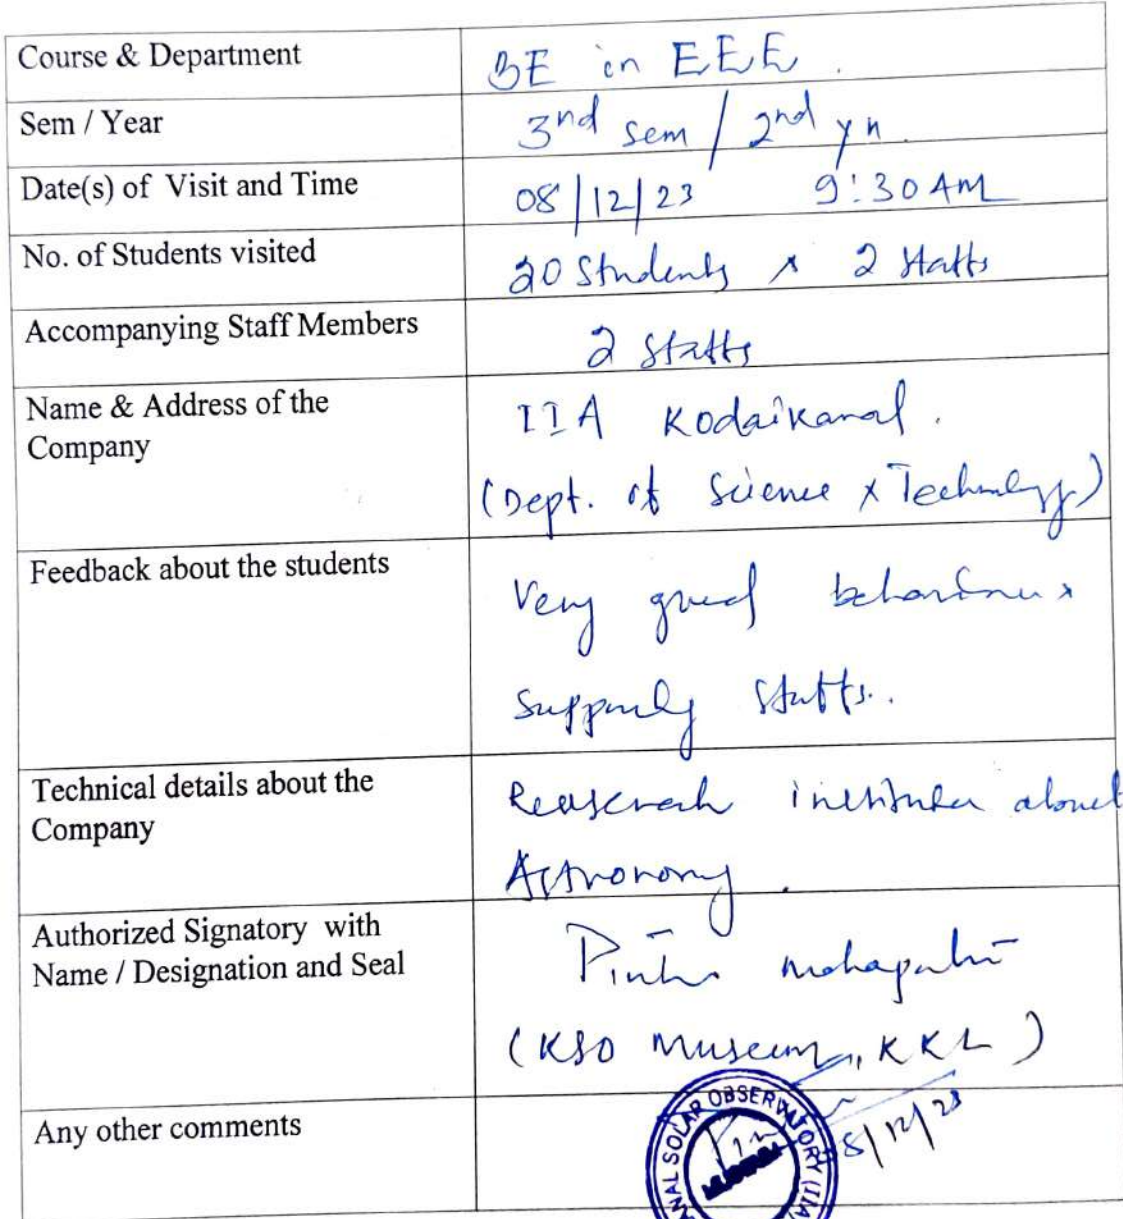 Course & Department
BE in EEE.
Sem / Year
3nd sem / 2nd yr.
Date(s) of Visit and Time
08/12/23 9:30 AM
No. of Students visited
20 Students & 2 Staffs
Accompanying Staff Members
2 Staffs
Name & Address of the
Company
IIA Kodaikanal.
(Dept. of Science & Technology)
Feedback about the students
Very good behaviour &
Staffs.
Technical details about the
Company
about
Astronomy.
Authorized Signatory with
Name / Designation and Seal
(KSO Museum, KKL)
Any other comments
NAL SOLAR OBSERVATORY (IIA)
8/12/23